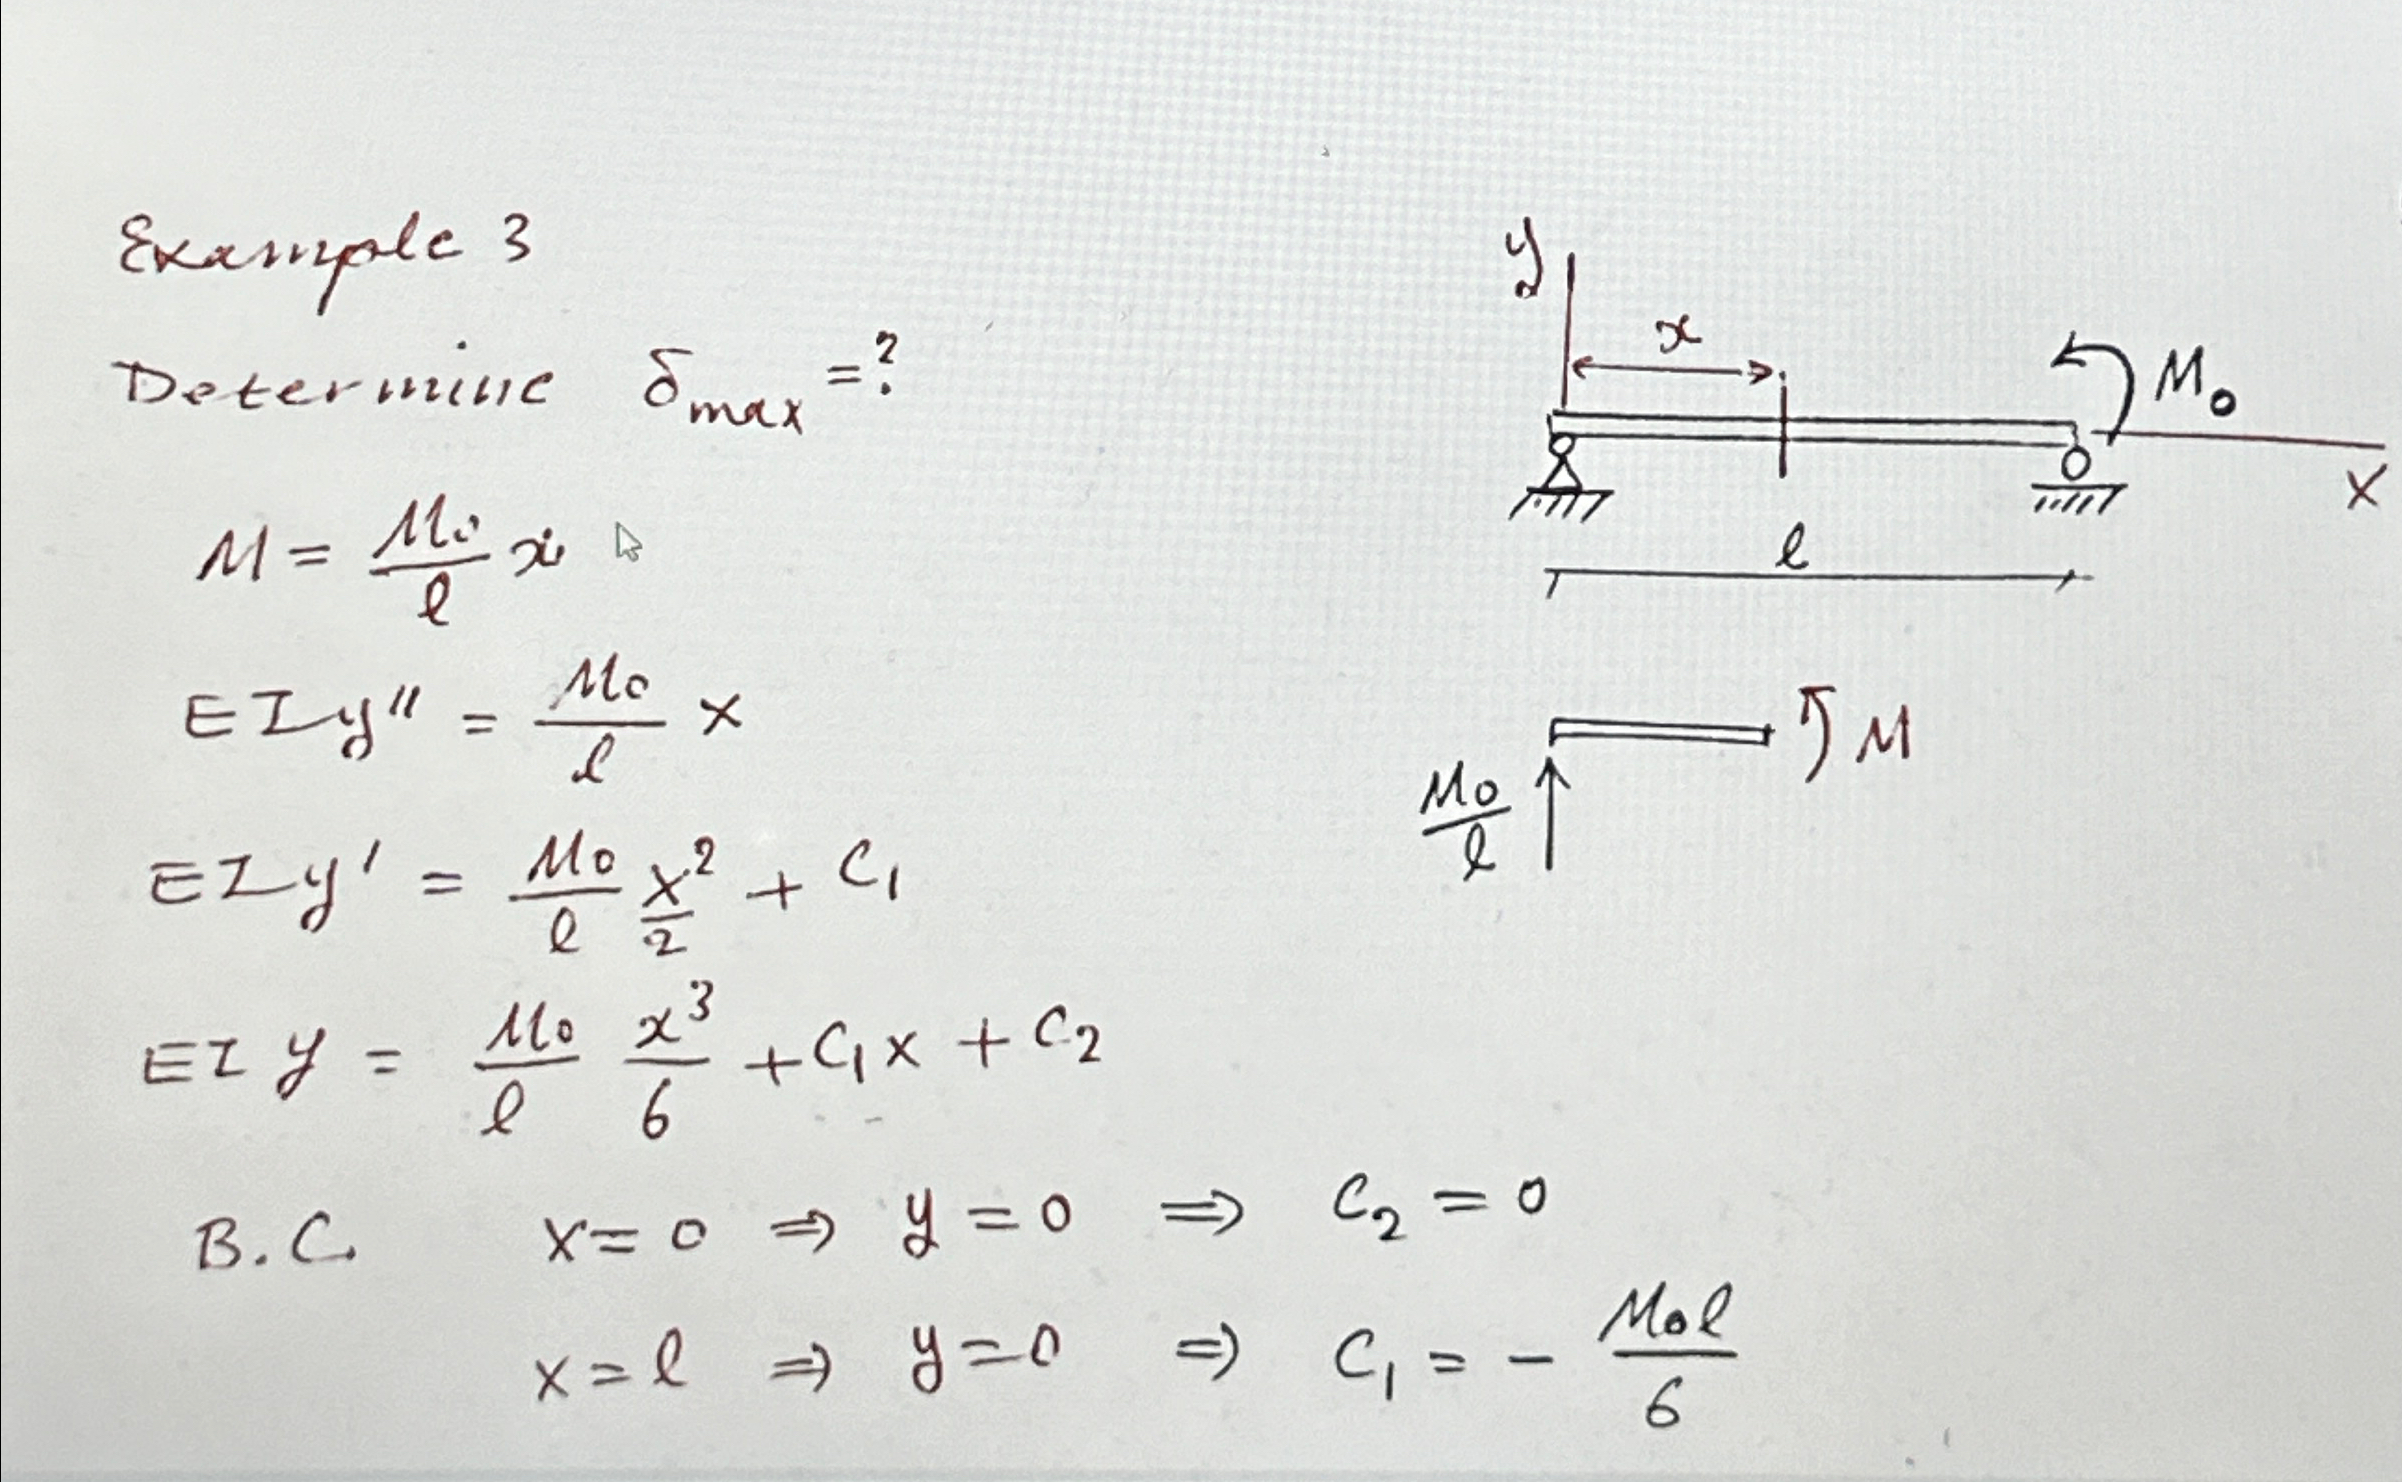 Example 3
Determine δmax = ?
M = M₀/l x
EIy'' = M₀/l x
EIy' = M₀/l x²/2 + C₁
EIy = M₀/l x³/6 + C₁x + C₂
B.C. x = 0 ⇒ y = 0 ⇒ C₂ = 0
x = l ⇒ y = 0 ⇒ C₁ = - M₀l/6
y
x
M₀
x
l
M
M₀/l